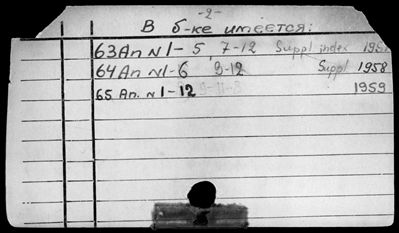 -2-
В б-ке имеется:
63 Ап. N 1-5, 7-12 Suppl index 1957
64 Ап N 1-6 9-12 Suppl 1958
65 Ап. N 1-12 1959